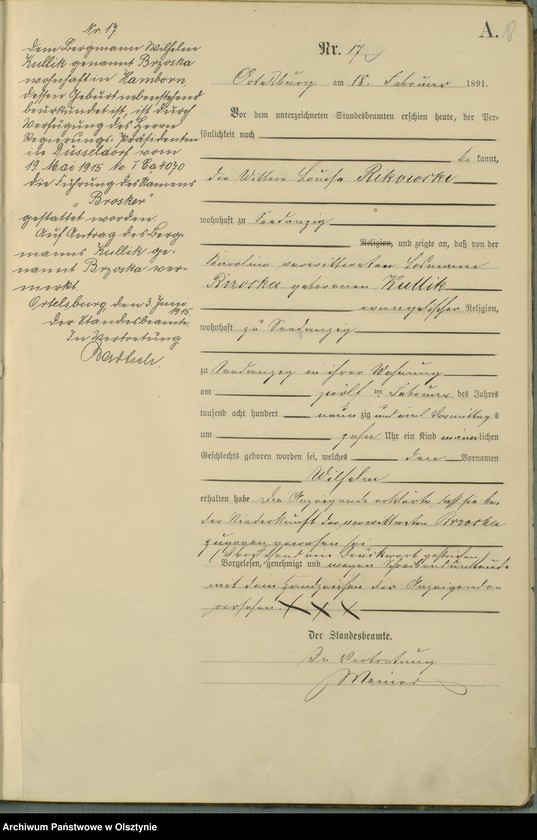 A.
18
Nr. 17
Ortelsburg am 18. Februar 1891.
Vor dem unterzeichneten Standesbeamten erschien heute, der Per-
sönlichkeit nach
be kannt,
die Wittwe Louise Rekowski
wohnhaft zu Seedanzig
Religion, und zeigte an, daß von der
Karoline verwittweten Losmann
Brzoska geborenen Kullik
evangelischer Religion,
wohnhaft zu Seedanzig
zu Seedanzig in ihrer Wohnung
am zwölf ten Februar des Jahres
tausend acht hundert neun zig und eins Vormittag s
um zehn Uhr ein Kind männlichen
Geschlechts geboren worden sei, welches den Vornamen
Wilhelm
erhalten habe. Die Anzeigende erklärte, daß sie bei
der Niederkunft der verwittweten Brzoska
zugegen gewesen sei.
Vorstehend ein Druckwort gestrichen.
Vorgelesen, genehmigt und wegen Schreibensunkunde
mit dem Handzeichen der Anzeigenden
versehen. X X X
Der Standesbeamte.
In Vertretung
Nr. 17
Dem Bergmann Wilhelm
Kullik genannt Brzoska
wohnhaft in Hamborn,
dessen Geburt nebenstehend
beurkundet ist, ist durch
Verfügung des Herrn
Regierungs-Präsidenten
in Düsseldorf vom
19 Mai 1915 No. I Ca 4070
die Führung des Namens
"Brosker"
gestattet worden.
Auf Antrag des Berg-
manns Kullik ge-
nannt Brzoska ver-
merkt.
Ortelsburg, den 3 Juni
1915
Der Standesbeamte.
In Vertretung
Archiwum Państwowe w Olsztynie